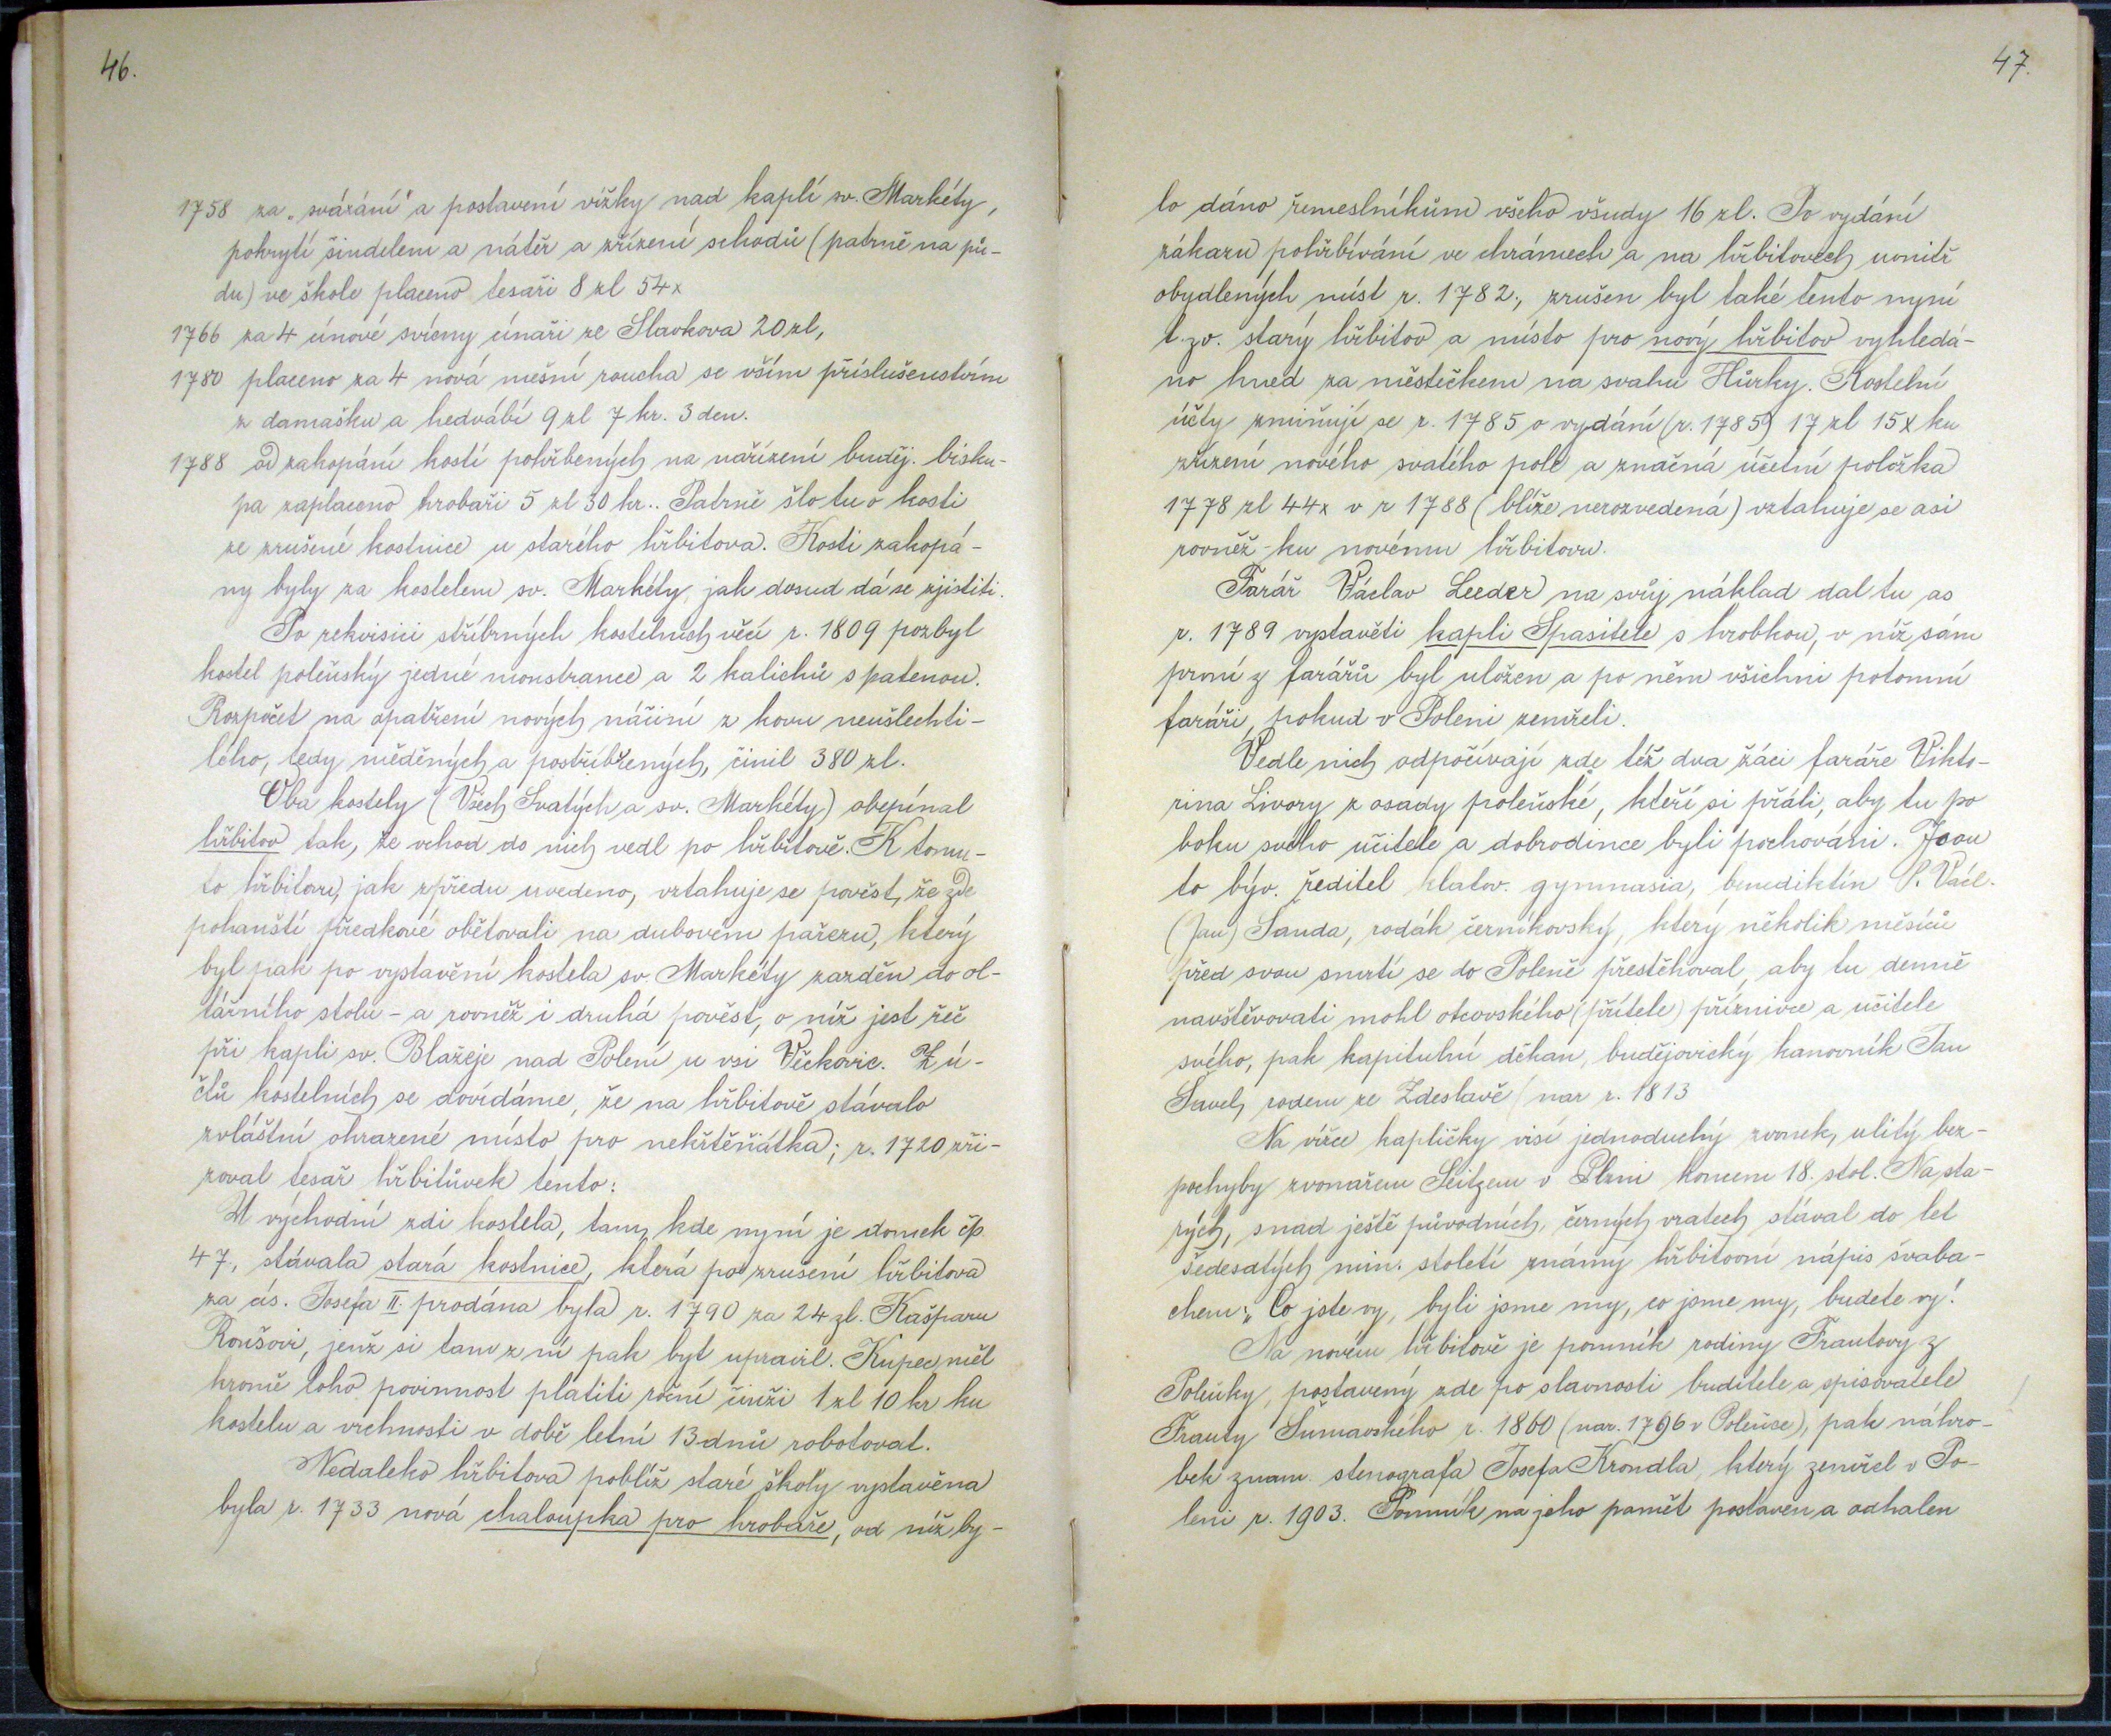 46.
1758 za „svázání" a postavení vížky nad kaplí sv. Markéty,
pokrytí šindelem a nátěr a zřízení schodů (patrně na pů-
du) ve škole placeno tesaři 8 zl 54x
1766 za 4 cínové svícny cínaři ze Slavkova 20 zl,
1780 placeno za 4 nová mešní roucha se vším příslušenstvím
z damašku a hedvábí 9 zl 7 kr. 3 den.
1788 od zakopání kostí pohřbených na nařízení buděj. bisku-
pa zaplaceno hrobaři 5 zl 30 kr.. Patrně šlo tu o kosti
ze zrušené kostnice u starého hřbitova. Kosti zakopá-
ny byly za kostelem sv. Markéty, jak dosud dá se zjistiti.
Po rekvisici stříbrných kostelních věcí r. 1809 pozbyl
kostel poleňský jedné monstrance a 2 kalichů s patenou.
Rozpočet na opatření nových náčiní z kovu neušlechti-
lého, tedy měděných a postříbřených, činil 380 zl.
Oba kostely (Všech Svatých a sv. Markéty) obepínal
hřbitov tak, že vchod do nich vedl po hřbitově. K tomu-
to hřbitovu, jak zpředu uvedeno, vztahuje se pověst, že zde
pohanští předkové obětovali na dubovém pařezu, který
byl pak po vystavění kostela sv. Markéty zazděn do ol-
tářního stolu - a rovněž i druhá pověst, o níž jest řeč
při kapli sv. Blažeje nad Polení u vsi Věčkovic. Z ú-
čtů kostelních se dovídáme, že na hřbitově stávalo
zvláštní ohrazené místo pro nekřtěňátka; r. 1720 zři-
zoval tesař hřbitůvek tento:
U východní zdi kostela, tam, kde nyní je domek čp.
47, stávala stará kostnice, která po zrušení hřbitova
za cís. Josefa II. prodána byla r. 1790 za 24 zl. Kašparu
Roušovi, jenž si tam z ní pak byt upravil. Kupec měl
kromě toho povinnost platiti roční činži 1 zl 10 kr ku
kostelu a vrchnosti v době letní 13 dnů robotoval.
Nedaleko hřbitova poblíž staré školy vystavěna
byla r. 1733 nová chaloupka pro hrobaře, od níž by-
47.
lo dáno řemeslníkům všeho všudy 16 zl. Po vydání
zákazu pohřbívání ve chrámech a na hřbitovech uvnitř
obydlených míst r. 1782., zrušen byl také tento nyní
t. zv. starý hřbitov a místo pro nový hřbitov vyhledá-
no hned za městečkem na svahu Hůrky. Kostelní
účty zmiňují se r. 1785 o vydání (r. 1785) 17 zl 15x ku
zřízení nového svatého pole a značná účetní položka
1778 zl 44x v r 1788 (blíže nerozvedená) vztahuje se asi
rovněž ku novému hřbitovu.
Farář Václav Leeder na svůj náklad dal tu as
r. 1789 vystavěti kapli Spasitele s hrobkou, v níž sám
první z farářů byl uložen a po něm všichni potomní
faráři, pokud v Poleni zemřeli.
Vedle nich odpočívají zde též dva žáci faráře Vikto-
rina Livory z osady poleňské, kteří si přáli, aby tu po
boku svého učitele a dobrodince byli pochováni. Jsou
to býv. ředitel klatov. gymnasia, benediktin P. Václ.
(Jan) Sanda, rodák černíkovský, který několik měsíců
před svou smrtí se do Poleně přestěhoval, aby tu denně
navštěvovati mohl otcovského (přítele) příznivce a učitele
svého, pak kapitulní děkan, budějovický kanovník Jan
Šavel, rodem ze Zdeslavě (nar r. 1813
Na vížce kapličky visí jednoduchý zvonek, ulitý bez-
pochyby zvonařem Seitzem v Plzni koncem 18. stol. Na sta-
rých, snad ještě původních, černých vratech stával do let
šedesátých min. století známý hřbitovní nápis švaba-
chem: „Co jste vy, byli jsme my, co jsme my, budete vy!
Na novém hřbitově je pomník rodiny Frantovy z
Poleňky, postavený zde po slavnosti buditele a spisovatele
Franty Šumavského r. 1860 (nar. 1796 v Poleňce), pak náhro-
bek znam. stenografa Josefa Krondla, který zemřel v Po-
leni r. 1903. Pomník na jeho pamět postaven a odhalen